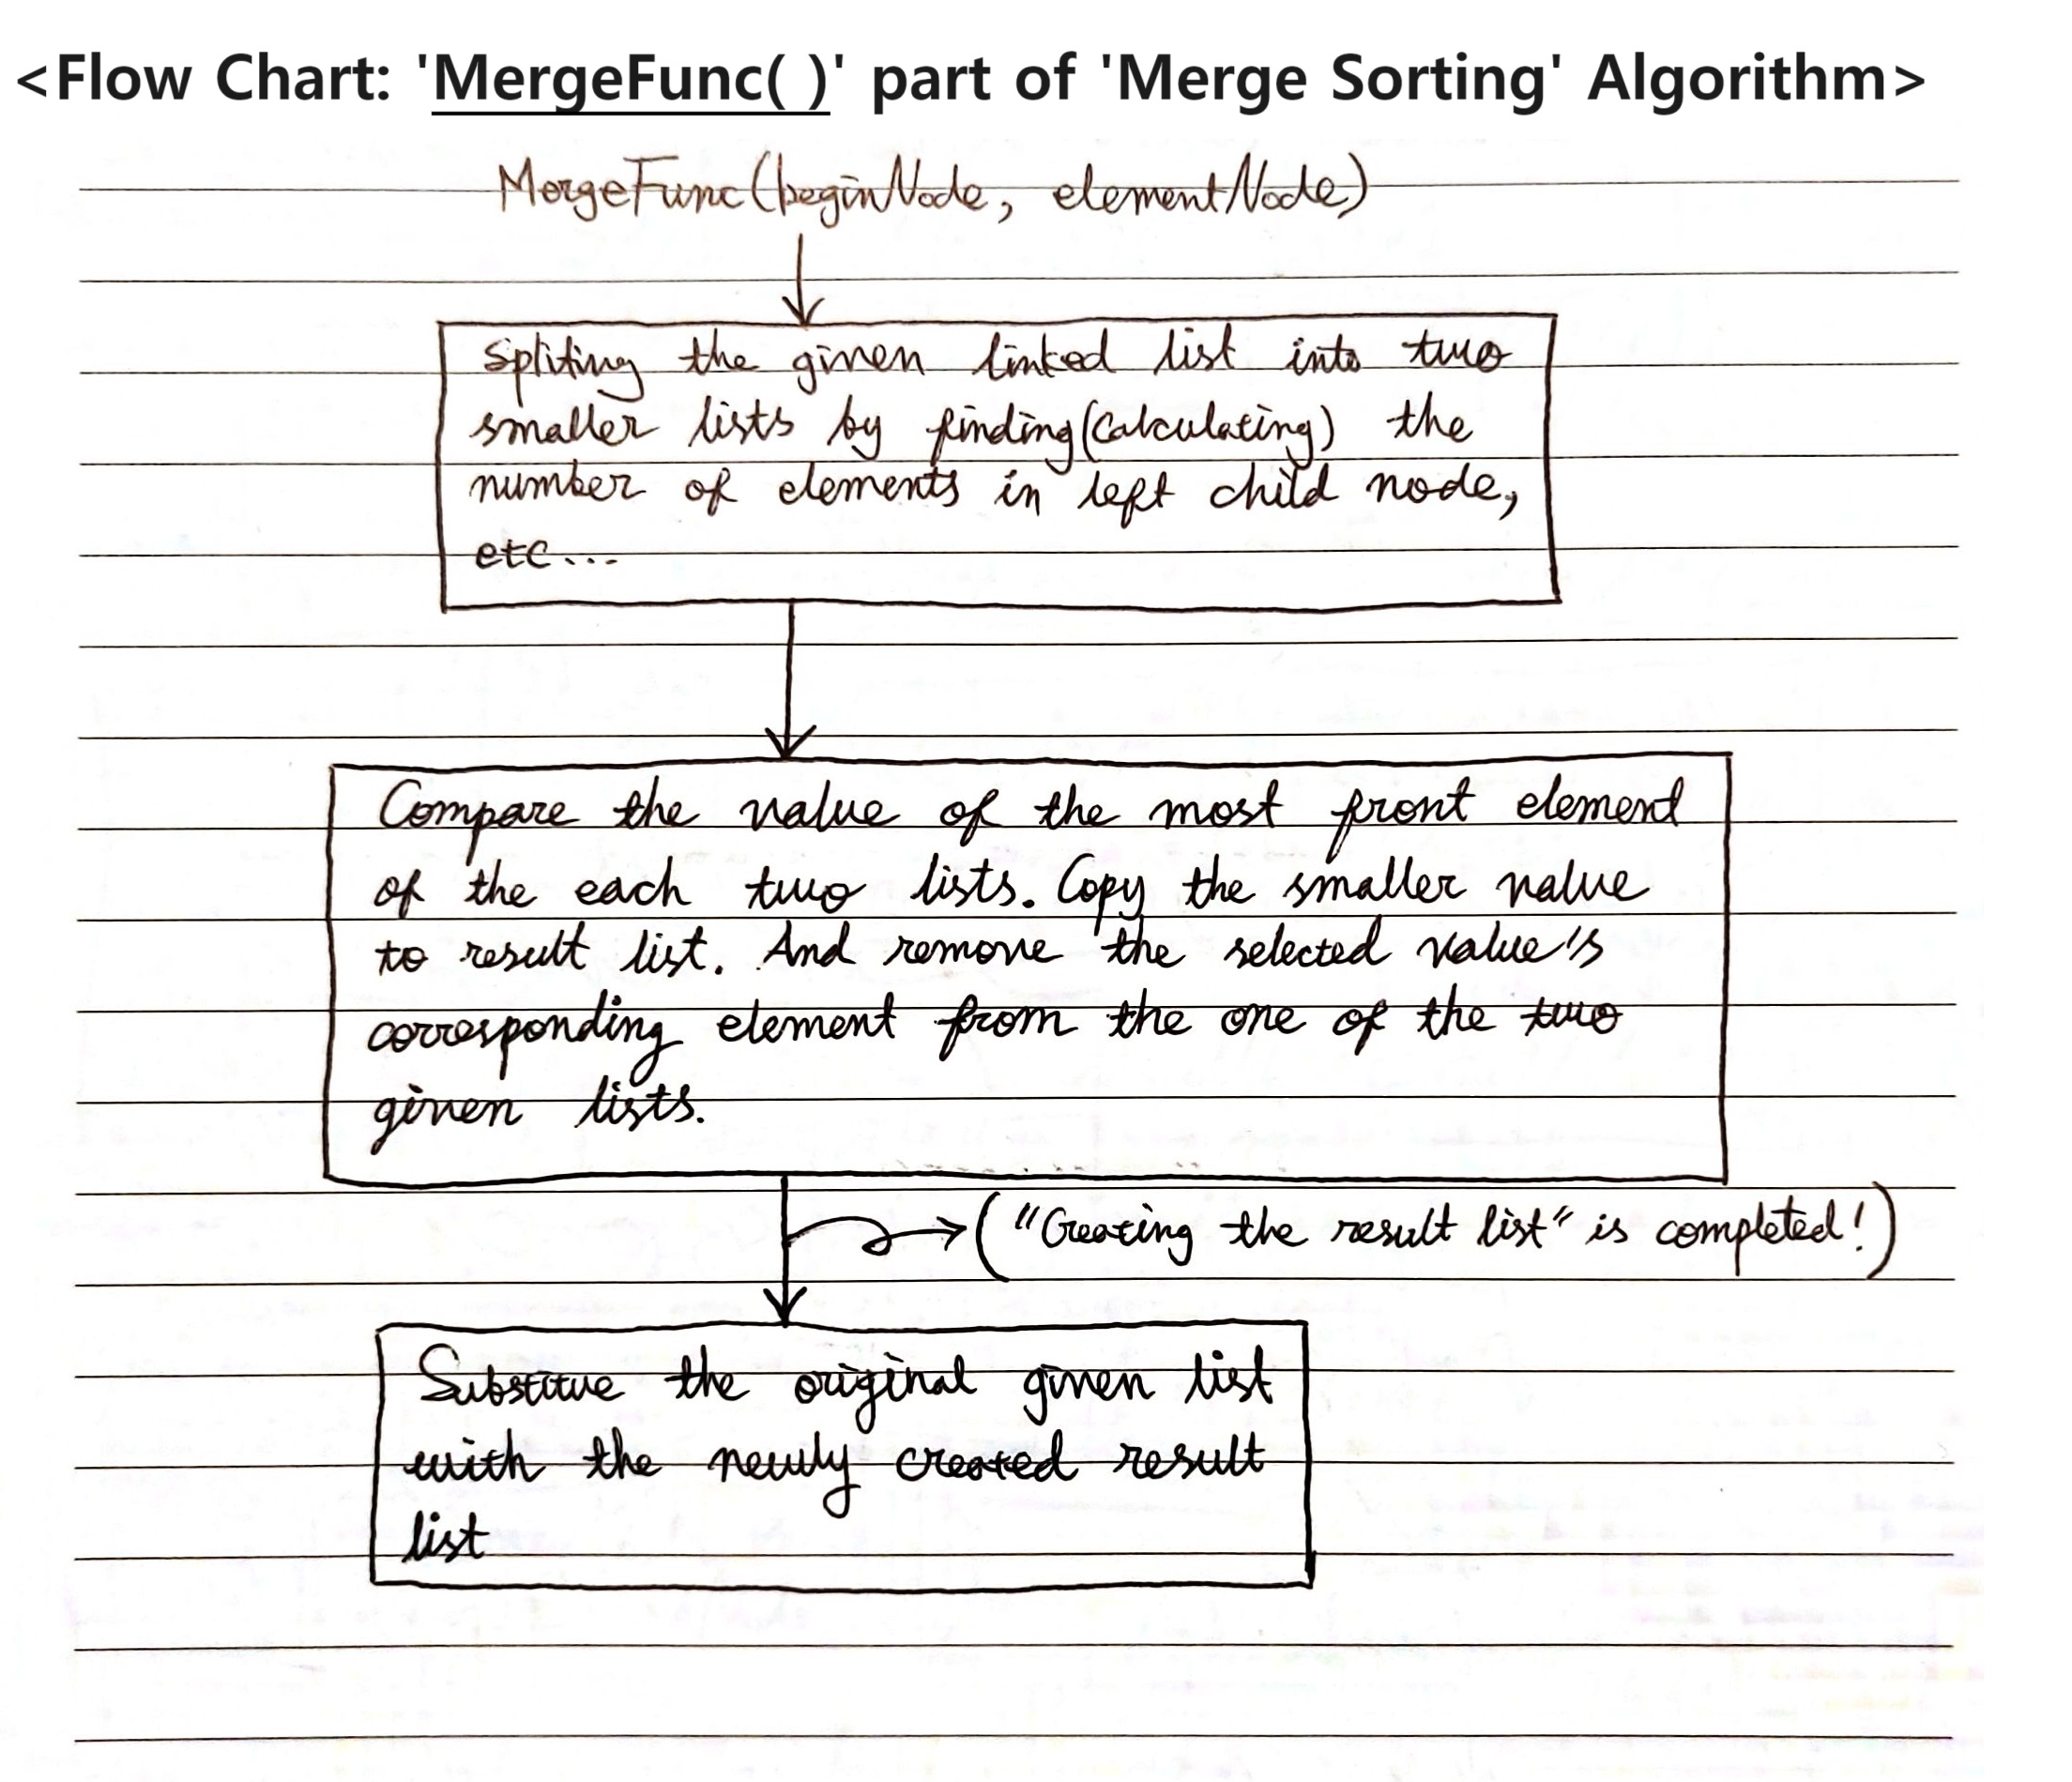 <Flow Chart: 'MergeFunc( )' part of 'Merge Sorting' Algorithm>
MergeFunc(beginNode, elementNode)
Spliting the given linked list into two
smaller lists by finding(Calculating) the
number of elements in left child node,
etc...
Compare the value of the most front element
of the each two lists. Copy the smaller value
to result list. And remove the selected value's
corresponding element from the one of the two
given lists.
("Creating the result list" is completed!)
Substitue the original given list
with the newly created result
list